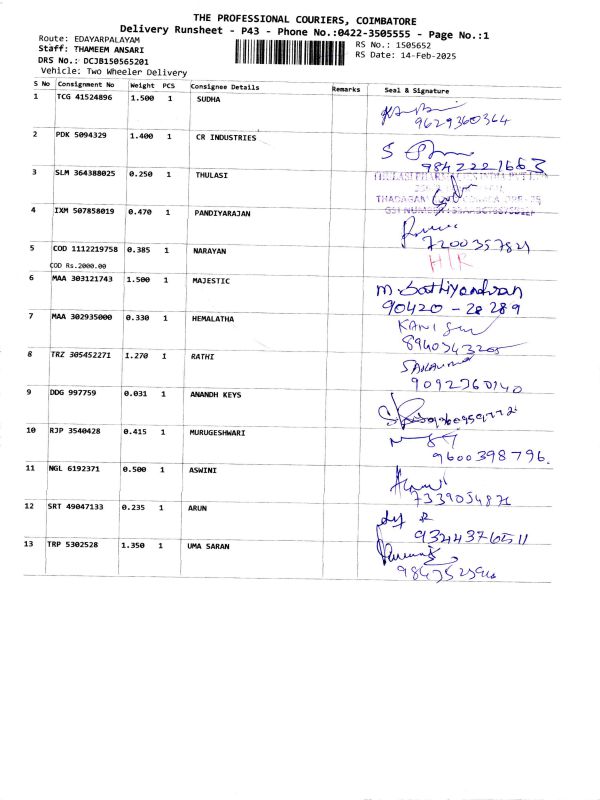 THE PROFESSIONAL COURIERS, COIMBATORE
Delivery Runsheet - P43 - Phone No.:0422-3505555 - Page No.:1
Route: EDAYARPALAYAM
RS No.: 1505652
Staff: THAMEEM ANSARI
RS Date: 14-Feb-2025
DRS No.: DCJB150565201
Vehicle: Two Wheeler Delivery
S No Consignment No Weight PCS Consignee Details Remarks Seal & Signature
1 TCG 41524896 1.500 1 SUDHA
9629360364
2 PDK 5094329 1.400 1 CR INDUSTRIES
9842221663
3 SLM 364388025 0.250 1 THULASI
4 IXM 507858019 0.470 1 PANDIYARAJAN
7200357821
5 COD 1112219758 0.385 1 NARAYAN
H/R
COD Rs.2000.00
6 MAA 303121743 1.500 1 MAJESTIC
M. Sathiyendran
90420 - 28289
7 MAA 302935000 0.330 1 HEMALATHA
8940343205
8 TRZ 305452271 1.270 1 RATHI
9092360140
9 DDG 997759 0.031 1 ANANDH KEYS
10 RJP 3540428 0.415 1 MURUGESHWARI
9600398796.
11 NGL 6192371 0.500 1 ASWINI
7339054871
12 SRT 49047133 0.235 1 ARUN
9324376511
13 TRP 5302528 1.350 1 UMA SARAN